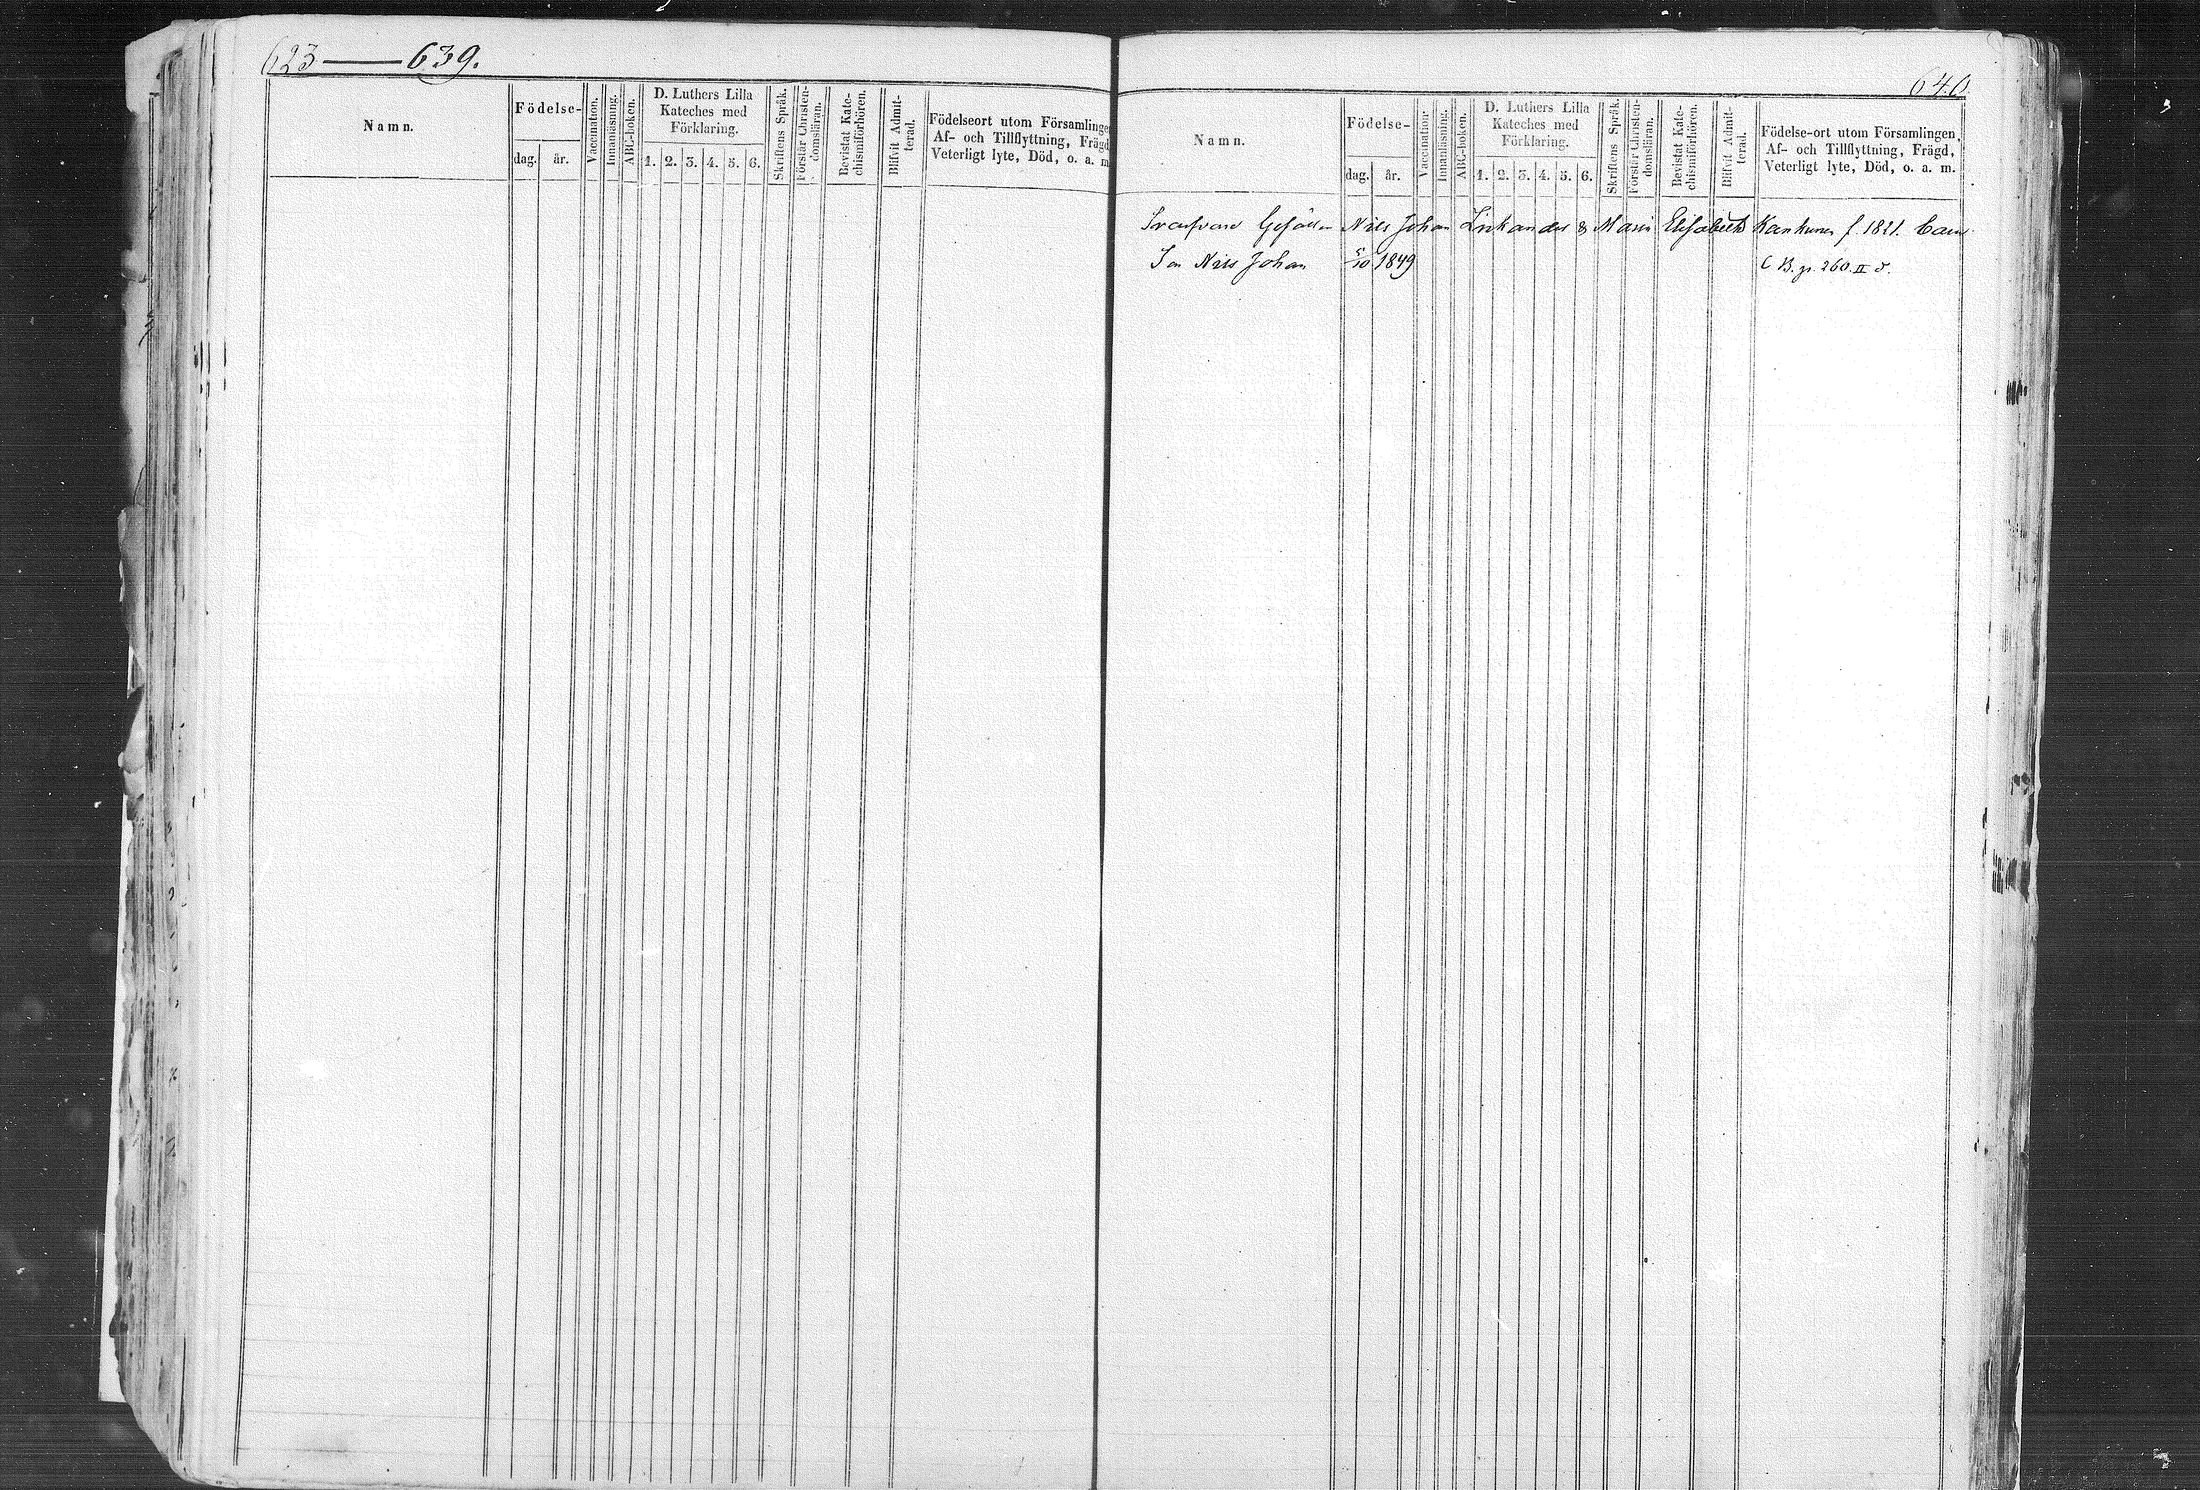 623 — 639.
Namn.
Födelse-
dag. år.
Vaccination.
Innanläsning.
ABC-boken.
D. Luthers Lilla
Kateches med
Förklaring.
1. 2. 3. 4. 5. 6.
Skriftens Språk.
Förstår Christen-
domsläran.
Bevistat Kate-
chismiförhören.
Blifvit Admit-
terad.
Födelseort utom Församlingen
Af- och Tillflyttning, Frägd
Veterligt lyte, Död, o. a. m
640
Namn.
Födelse-
dag. år.
Vaccination.
Innanläsning.
ABC-boken.
D. Luthers Lilla
Kateches med
Förklaring.
1. 2. 3. 4. 5. 6.
Skriftens Språk.
Förstår Christen-
domsläran.
Bevistat Kate-
chismiförhören.
Blifvit Admit-
terad.
Födelse-ort utom Församlingen,
Af- och Tillflyttning, Frägd,
Veterligt lyte, Död, o. a. m.
Nils Johan & Maria Elisabeth f. 1821. barn
Nils Johan 5/10 1849 C B. p. 260. II d.